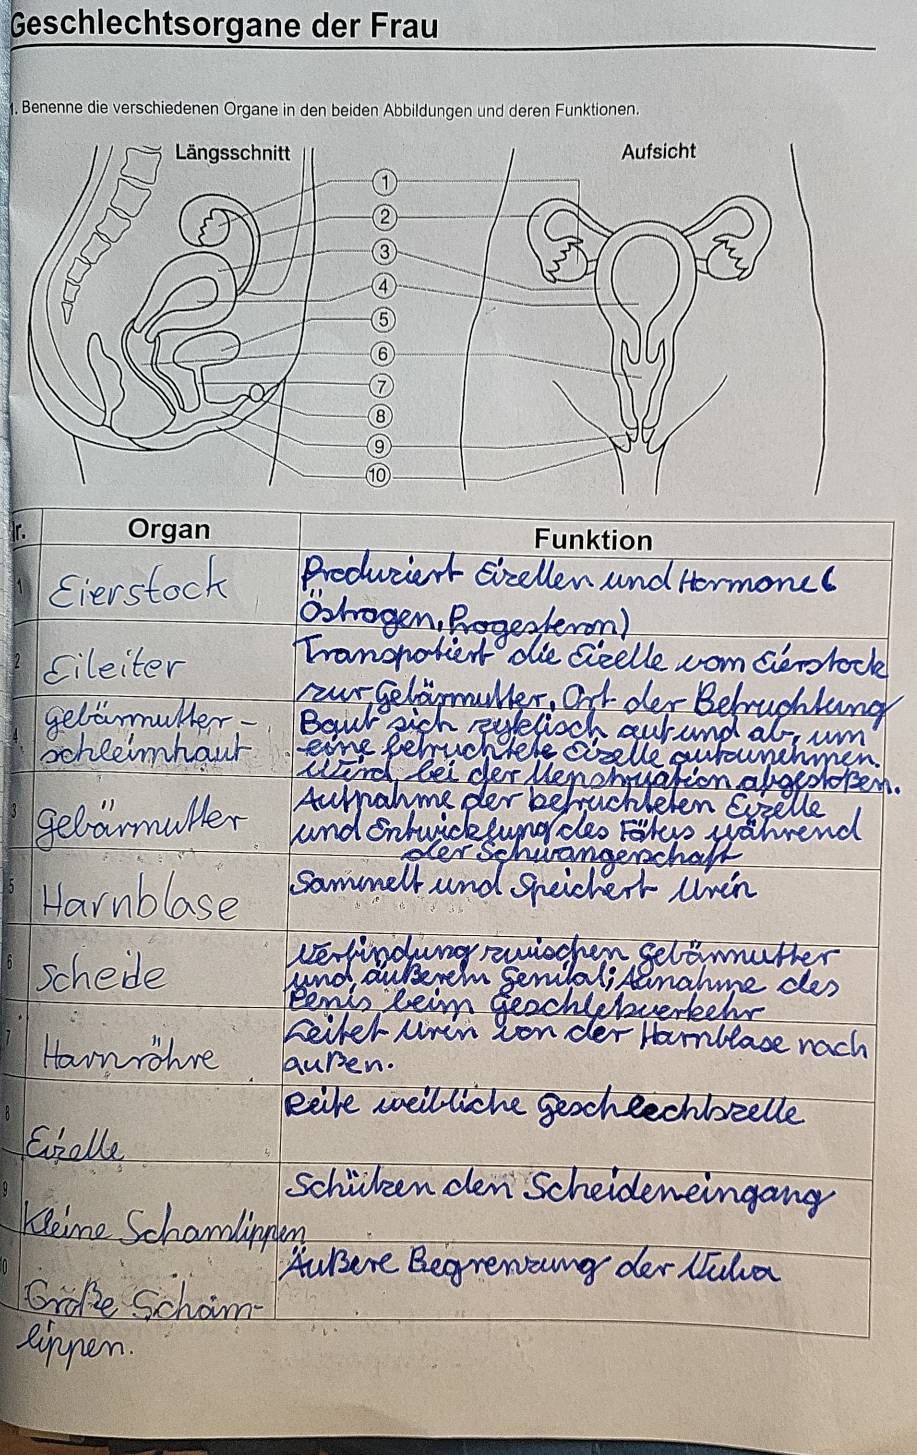 Geschlechtsorgane der Frau
1. Benenne die verschiedenen Organe in den beiden Abbildungen und deren Funktionen.
Längsschnitt
Aufsicht
1
2
3
4
5
6
7
8
9
10
Nr. Organ Funktion
1 Eierstock Produziert Eizellen und Hormone(
Östrogen, Progesteron)
2 Eileiter Transportiert die Eizelle vom Eierstock
zur Gebärmutter, Ort der Befruchtung
4 gebärmutter- Baut sich zyklisch auf und ab, um
schleimhaut eine befruchtete Eizelle aufzunehmen.
Wird bei der Menstruation abgestoßen.
3 gebärmutter Aufnahme der befruchteten Eizelle
und Entwicklung des Fötus während
der Schwangerschaft
5 Harnblase Sammelt und Speichert Urin
6 Scheide Verbindung zwischen Gebärmutter
und äußerem Genital; Aunahme des
Penis beim Geschlebverkehr
7 Harnröhre Leitet Urin von der Harnblase nach
außen.
8 Eizelle Reife weibliche Geschlechtszelle
9 Kleine Schamlippen Schützen den Scheideneingang
10 Große Scham- Äußere Begrenzung der Vulva
lippen.